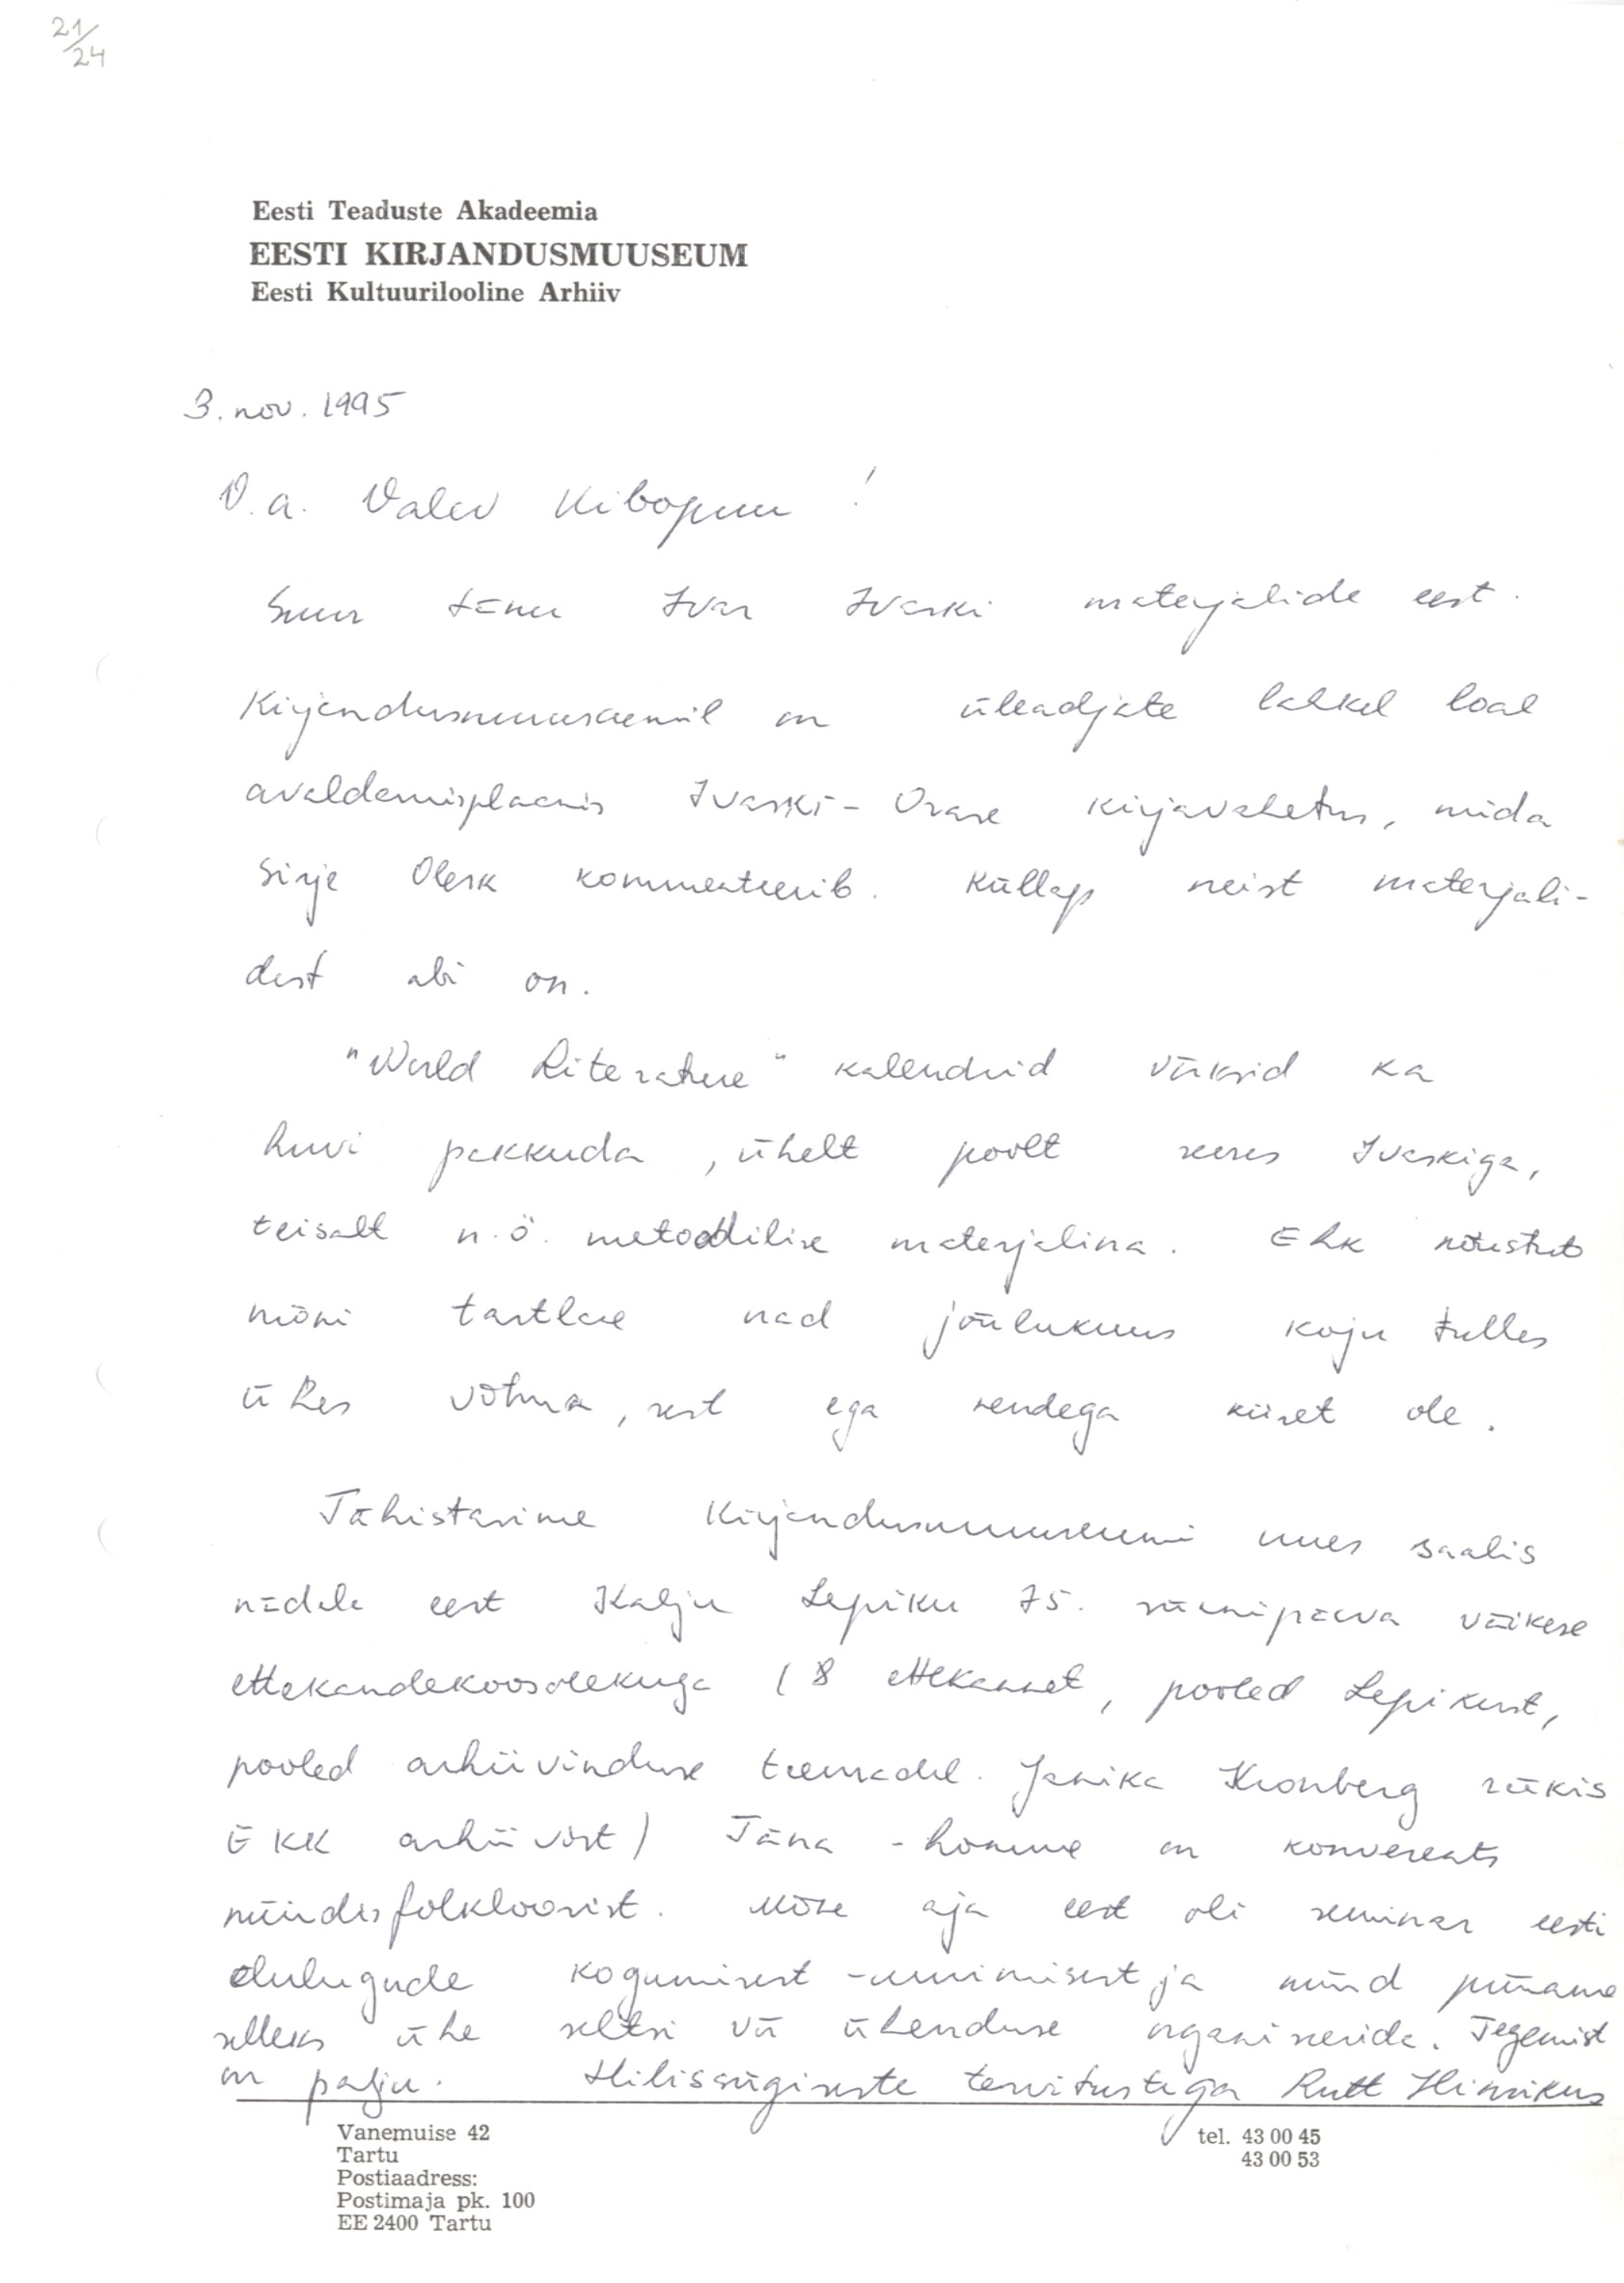 21/24
Eesti Teaduste Akadeemia
EESTI KIRJANDUSMUUSEUM
Eesti Kultuurilooline Arhiiv
3. nov. 1995
V.a. Valev Uibopuu!
Suur tänu Ivar Ivaski materjalide eest.
Kirjandusmuuseumil on üleandjate lahkel loal
avaldamisplaanis Ivaski-Orase kirjavahetus, mida
Sirje Olesk kommenteerib. Küllap neist materjali-
dest abi on.
"World Literature" kalendrid võiksid ka
huvi pakkuda, ühelt poolt seoses Ivaskiga,
teisalt n.ö. metoodilise materjalina. Ehk nõustub
mõni tartlane nad jõulukuus koju tulles
ühes võtma, sest ega nendega kiiret ole.
Tähistasime Kirjandusmuuseumi uues saalis
nädala eest Kalju Lepiku 75. sünnipäeva väikese
ettekandekoosolekuga (8 ettekannet, pooled Lepikust,
pooled arhiivinduse teemadel. Janika Kronberg rääkis
EKK arhiivist) Täna-homme on konverents
nüüdisfolkloorist. Mõne aja eest oli seminar eesti
elulugude kogumisest -uurimisest ja nüüd püüame
selleks ühe seltsi või ühenduse organiseerida. Tegemist
on palju. Hilissügiseste tervitustega Rutt Hinrikus
Vanemuise 42
Tartu
Postiaadress:
Postimaja pk. 100
EE 2400 Tartu
tel. 43 00 45
43 00 53